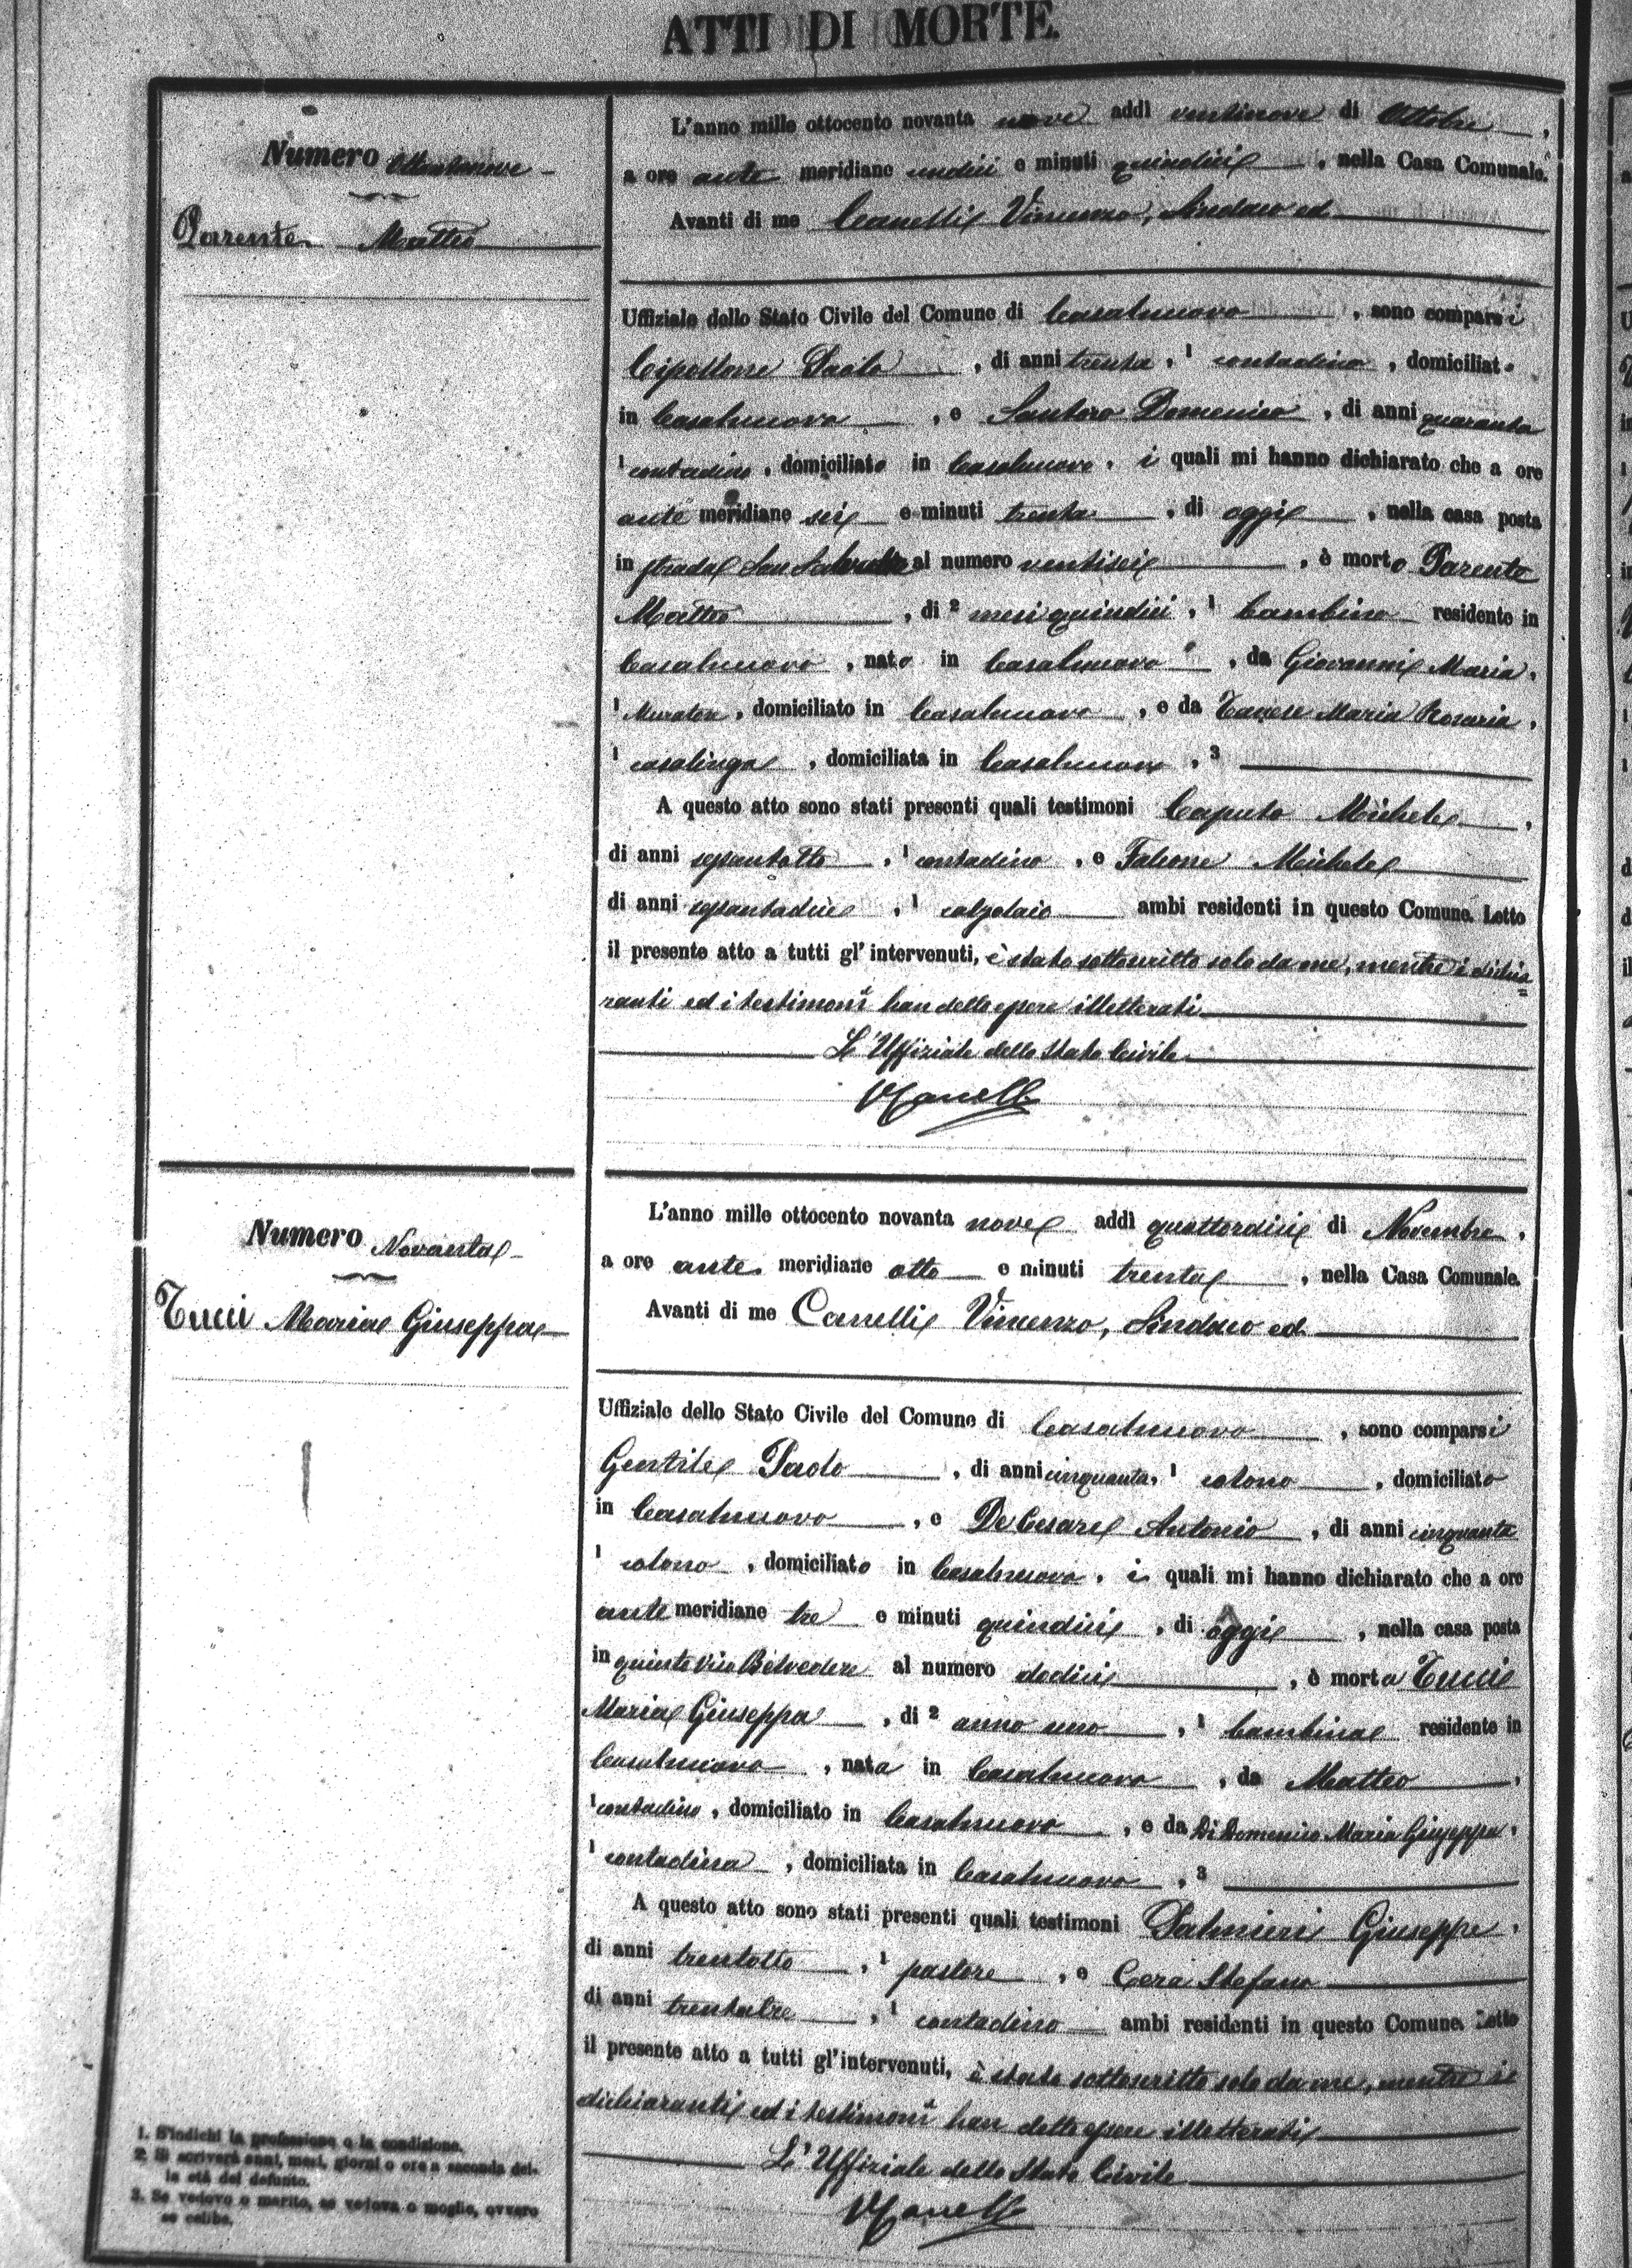 ATTI DI MORTE.
Numero Ottantanove
Parente Matteo
L'anno mille ottocento novanta nove addì ventinove di Ottobre,
a ore ante meridiane undici e minuti quindici, nella Casa Comunale.
Avanti di me Canelli Vincenzo, Sindaco ed
Uffiziale dello Stato Civile del Comune di Casalnuovo, sono comparsi
Cipollone Paolo, di anni trenta, 1 contadino, domiciliato
in Casalnuovo, e Santoro Domenico, di anni quaranta
1 contadino, domiciliato in Casalnuovo, i quali mi hanno dichiarato che a ore
ante meridiane sei e minuti trenta, di oggi, nella casa posta
in strada San Salvatore al numero ventisei, è morto Parente
Matteo, di 2 mesi quindici, 1 bambino residente in
Casalnuovo, nato in Casalnuovo, da Giovanni Maria,
1 Muratore, domiciliato in Casalnuovo, e da Maria Rosaria,
1 casalinga, domiciliata in Casalnuovo, 3
A questo atto sono stati presenti quali testimoni Caputo Michele,
di anni, 1 contadino, e Falcone Michele
di anni, 1 calzolaio ambi residenti in questo Comune. Letto
il presente atto a tutti gl'intervenuti, è stato sottoscritto solo da me, mentre i dichia=
ranti ed i testimoni han detto essere illetterati
L'Uffiziale dello Stato Civile
VCanelli
Numero Novanta
Tucci Maria Giuseppa
L'anno mille ottocento novanta nove addì quattordici di Novembre,
a ore ante meridiane otto e minuti trenta, nella Casa Comunale.
Avanti di me Canelli Vincenzo, Sindaco ed
Uffiziale dello Stato Civile del Comune di Casalnuovo, sono comparsi
Gentile Paolo, di anni cinquanta, 1 colono, domiciliato
in Casalnuovo, e De Cesare Antonio, di anni cinquanta
1 colono, domiciliato in Casalnuovo, i quali mi hanno dichiarato che a ore
ante meridiane tre e minuti quindici, di oggi, nella casa posta
in quinto vico Belvedere al numero dodici, è morta Tucci
Maria Giuseppa, di 2 anno uno, 1 bambina residente in
Casalnuovo, nata in Casalnuovo, da Matteo,
1 contadino, domiciliato in Casalnuovo, e da Di Domenico Maria Giuseppa,
1 contadina, domiciliata in Casalnuovo, 3
A questo atto sono stati presenti quali testimoni Palmieri Giuseppe,
di anni trentotto, 1 pastore, e Cera Stefano
di anni trentatre, 1 contadino ambi residenti in questo Comune. Letto
il presente atto a tutti gl'intervenuti, è stato sottoscritto solo da me, mentre i
dichiaranti ed i testimoni han detto essere illetterati
L'Uffiziale dello Stato Civile
VCanelli
1. S'indichi la professione o la condizione.
2. Si scriverà anni, mesi, giorni o ore a seconda del-
la età del defunto.
3. Se vedovo o marito, se vedova o moglie, ovvero
se celibe.